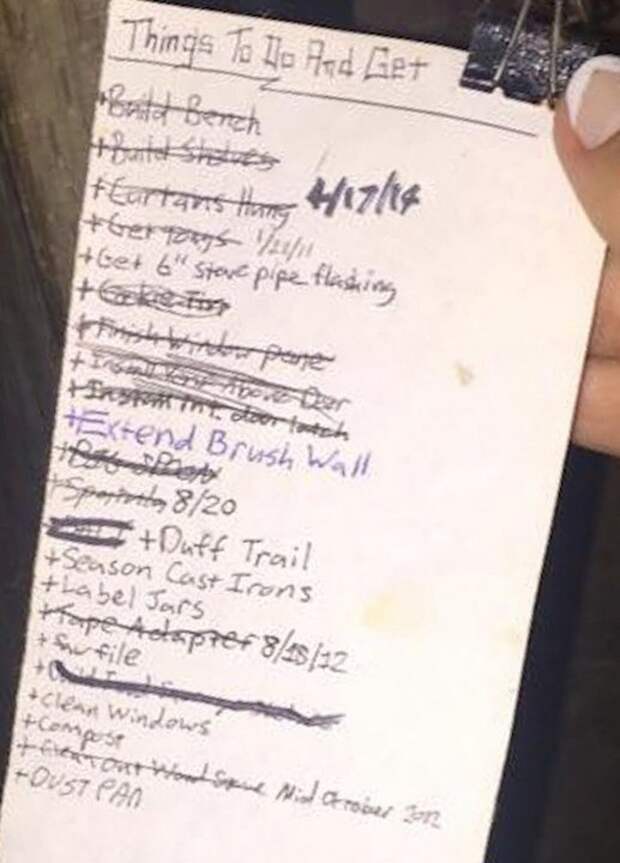 Things To Do And Get
+Build Bench
+Build Shelves
+Curtains Hung 4/17/14
+Get 1/21/11
+Get 6" stove pipe flashing
+
+Finish Window pane
+Install Vent Above Door
+Install Int. door latch
+Extend Brush Wall
+
+ 8/20
+Duff Trail
+Season Cast Irons
+Label Jars
+Tape Adapter 8/18/12
+Saw file
+
+Clean Windows
+Compost
+Clean Out Wood Stove Mid October 2012
+DUST PAN